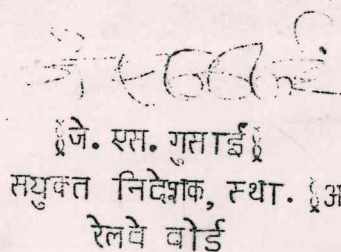 §जे. एस. गुसाई§
सयुक्त निदेशक, स्था. §अ
रेलवे बोर्ड